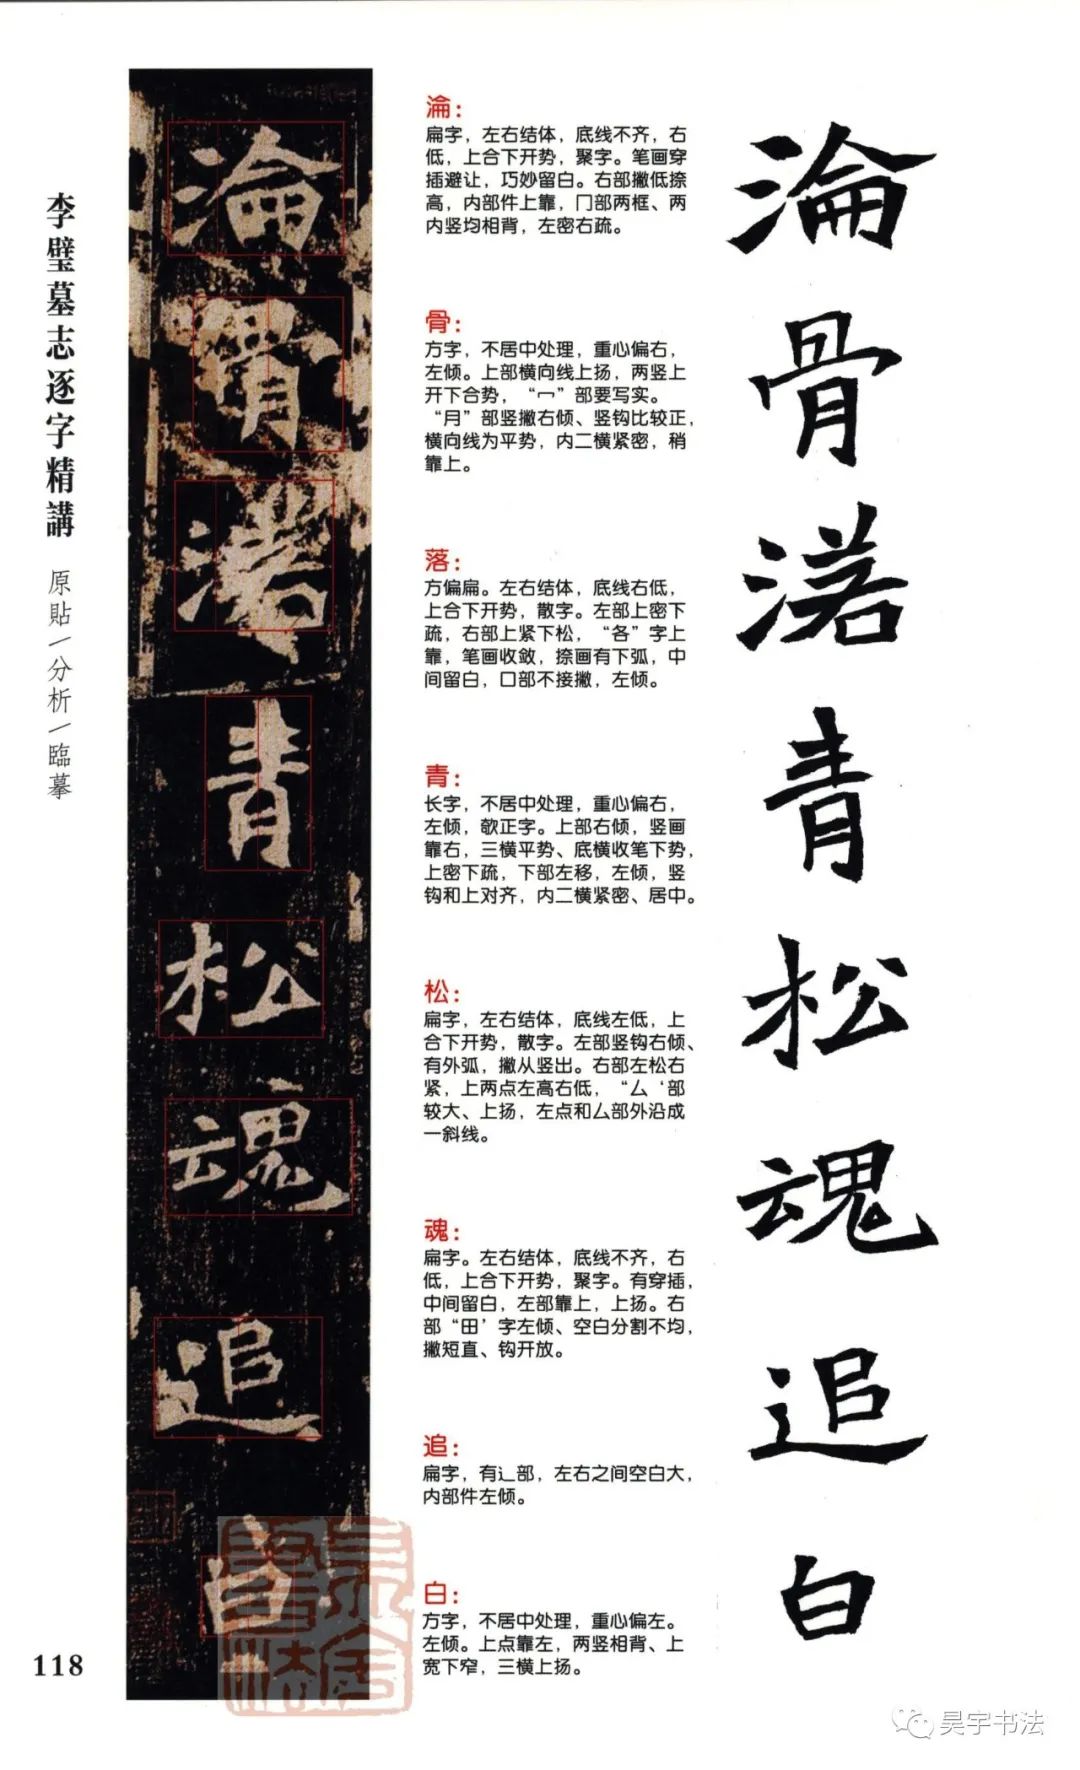 李璧墓志逐字精講
原貼/分析/臨摹
淪骨落青松魂追白
淪：
扁字，左右结体，底线不齐，右
低，上合下开势，聚字。笔画穿
插避让，巧妙留白。右部撇低捺
高，内部件上靠，冂部两框、两
内竖均相背，左密右疏。
骨：
方字，不居中处理，重心偏右，
左倾。上部横向线上扬，两竖上
开下合势，“冖”部要写实。
“月”部竖撇右倾、竖钩比较正，
横向线为平势，内二横紧密，稍
靠上。
落：
方偏扁。左右结体，底线右低，
上合下开势，散字。左部上密下
疏，右部上紧下松，“各”字上
靠，笔画收敛，捺画有下弧，中
间留白，口部不接撇，左倾。
青：
长字，不居中处理，重心偏右，
左倾，欹正字。上部右倾，竖画
靠右，三横平势、底横收笔下势，
上密下疏，下部左移，左倾，竖
钩和上对齐，内二横紧密、居中。
松：
扁字，左右结体，底线左低，上
合下开势，散字。左部竖钩右倾、
有外弧，撇从竖出。右部左松右
紧，上两点左高右低，“厶‘部
较大、上扬，左点和厶部外沿成
一斜线。
魂：
扁字。左右结体，底线不齐，右
低，上合下开势，聚字。有穿插，
中间留白，左部靠上，上扬。右
部“田’字左倾、空白分割不均，
撇短直、钩开放。
追：
扁字，有辶部，左右之间空白大，
内部件左倾。
白：
方字，不居中处理，重心偏左。
左倾。上点靠左，两竖相背、上
宽下窄，三横上扬。
淪骨落青松魂追白
118
昊宇书法